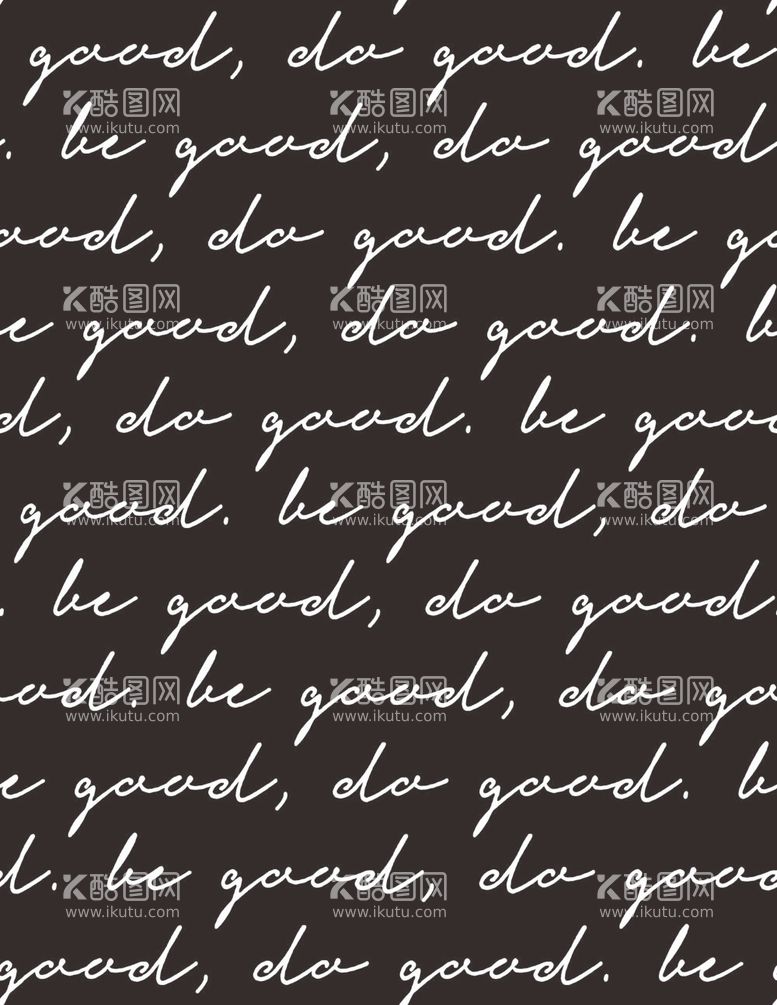 good, do good. be
酷图网 酷图网 酷图网
www.ikutu.com www.ikutu.com www.ikutu.com
. be good, do good
ood, do good. be go
酷图网 酷图网 酷图网
www.ikutu.com www.ikutu.com www.ikutu.com
e good, do good. b
d, do good. be good
酷图网 酷图网 酷图网
good. be good, do
www.ikutu.com www.ikutu.com www.ikutu.com
. be good, do good.
酷图网 酷图网 酷图网
ood. be good, do go
www.ikutu.com www.ikutu.com www.ikutu.com
e good, do good. b
酷图网 酷图网 酷图网
d. be good, do good
www.ikutu.com www.ikutu.com www.ikutu.com
good, do good. be